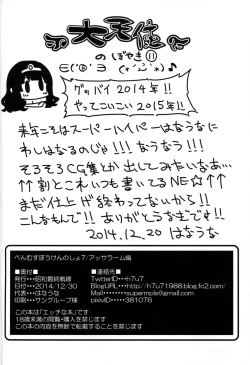 大天使
のぼやき⑪
グッバイ2014年!!
やってこいこい2015年!!
来年こそはスーパーハイパーはなうなに
わしはなるのじゃ!!! なうなう!!!
そろそろCG集とか出してみたいなあ…
↑↑割とこれいつも書いてるNE☆↑↑
まだ仕上げ終わってないから!!
こんなもんで!! ありがとうなぎです!!
2014.12.20 はなうな
べんむすぼうけんのしょ7/アッサラーム編
■奥付■
発行・・・昭和最終戦線
Date・・・2014/12/30
代表・・・はなうな
印刷・・・サングループ様
■連絡先■
TwitterID・・・h7u7
BlogURL・・・http://h7u71988.blog.fc2.com/
Mail・・・supermpls@gmail.com
pixivID・・・381076
この本は「エッチな本」です
18歳未満の閲覧・購入を禁じます
この本の内容を無断で転載することを禁じます